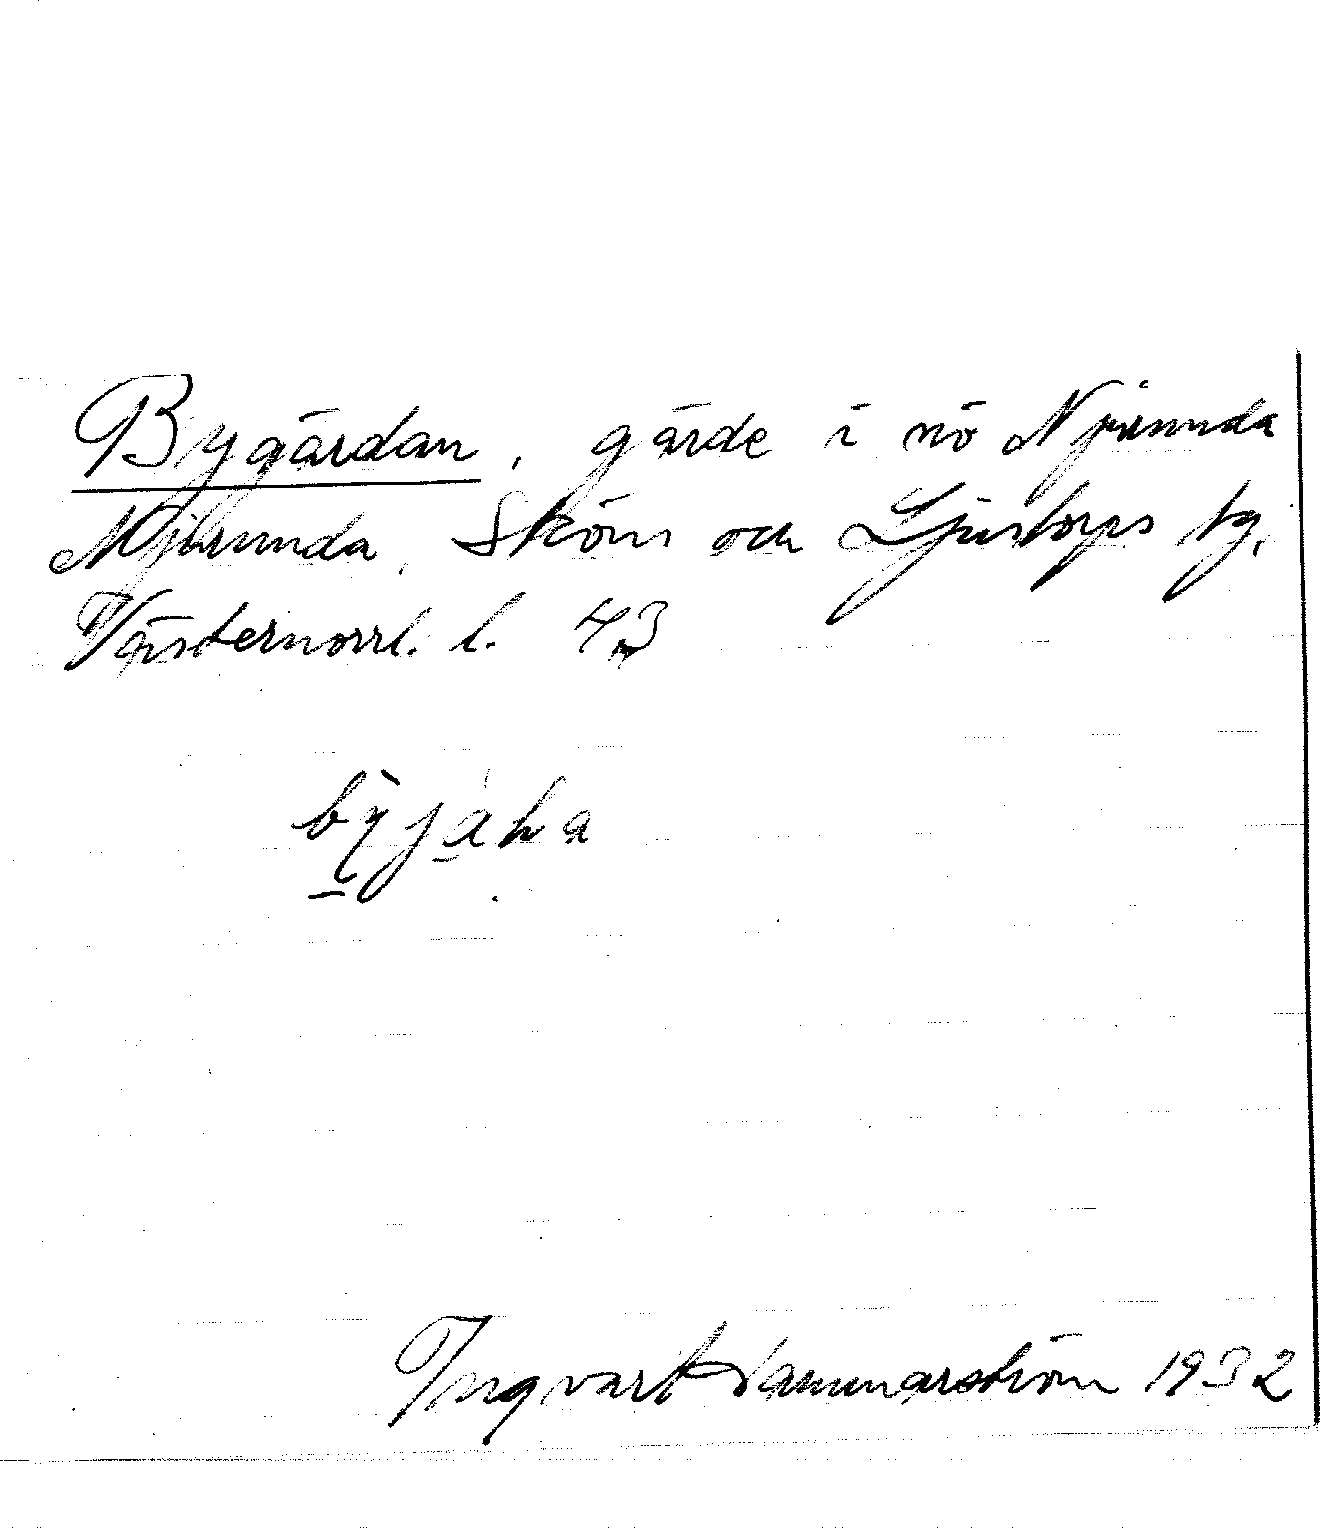 Bygärdan, gärde i nö Njurunda
Njurunda, Sköns och Ljustorps tg,
Västernorrl. l. 43
bỳjáha
Ingvart Hammarström 1932